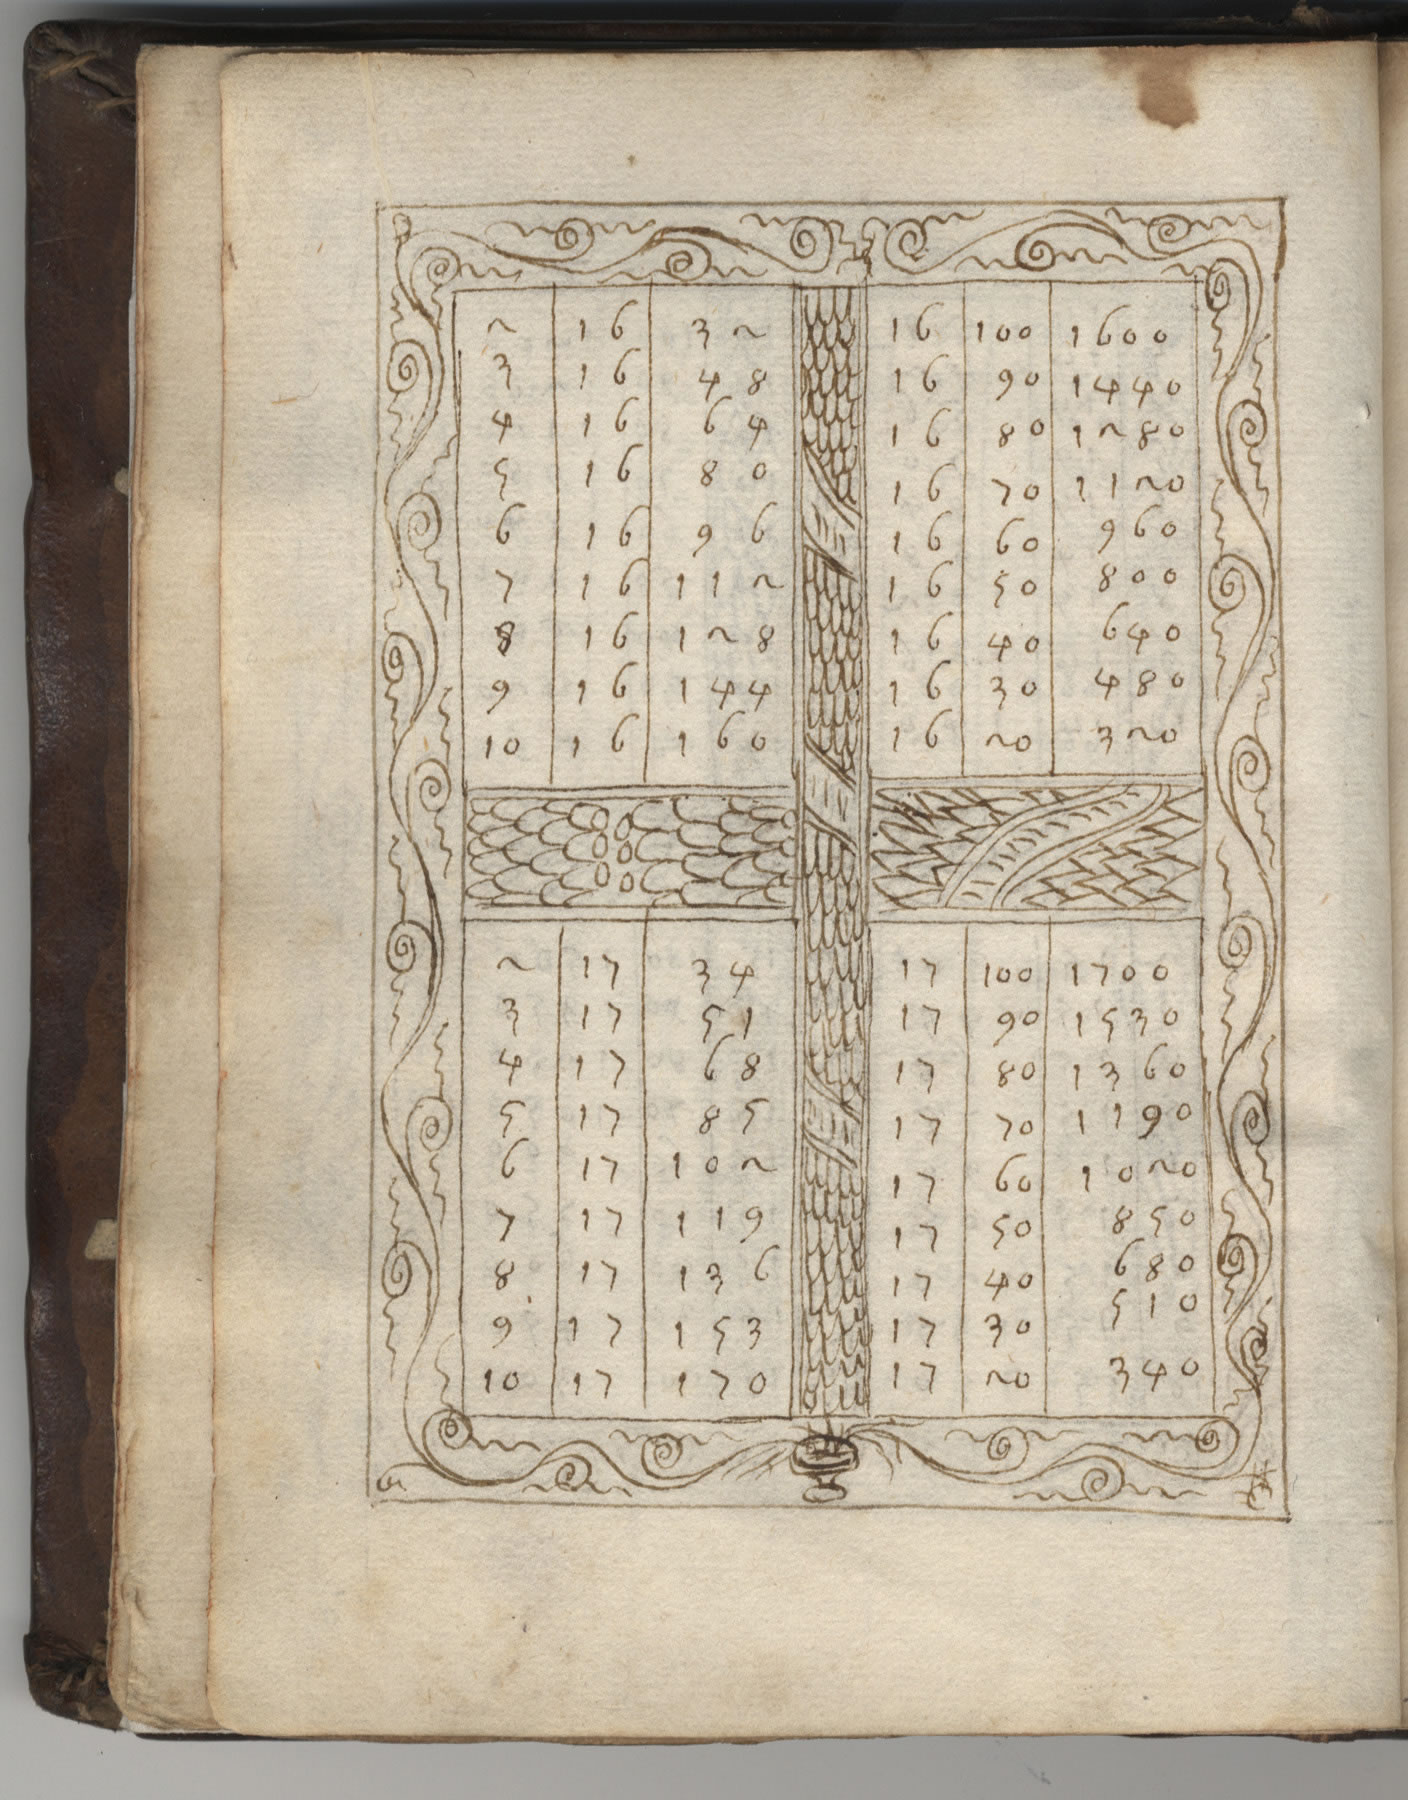 2 16 32
3 16 48
4 16 64
5 16 80
6 16 96
7 16 112
8 16 128
9 16 144
10 16 160
16 100 1600
16 90 1440
16 80 1280
16 70 1120
16 60 960
16 50 800
16 40 640
16 30 480
16 20 320
2 17 34
3 17 51
4 17 68
5 17 85
6 17 102
7 17 119
8 17 136
9 17 153
10 17 170
17 100 1700
17 90 1530
17 80 1360
17 70 1190
17 60 1020
17 50 850
17 40 680
17 30 510
17 20 340